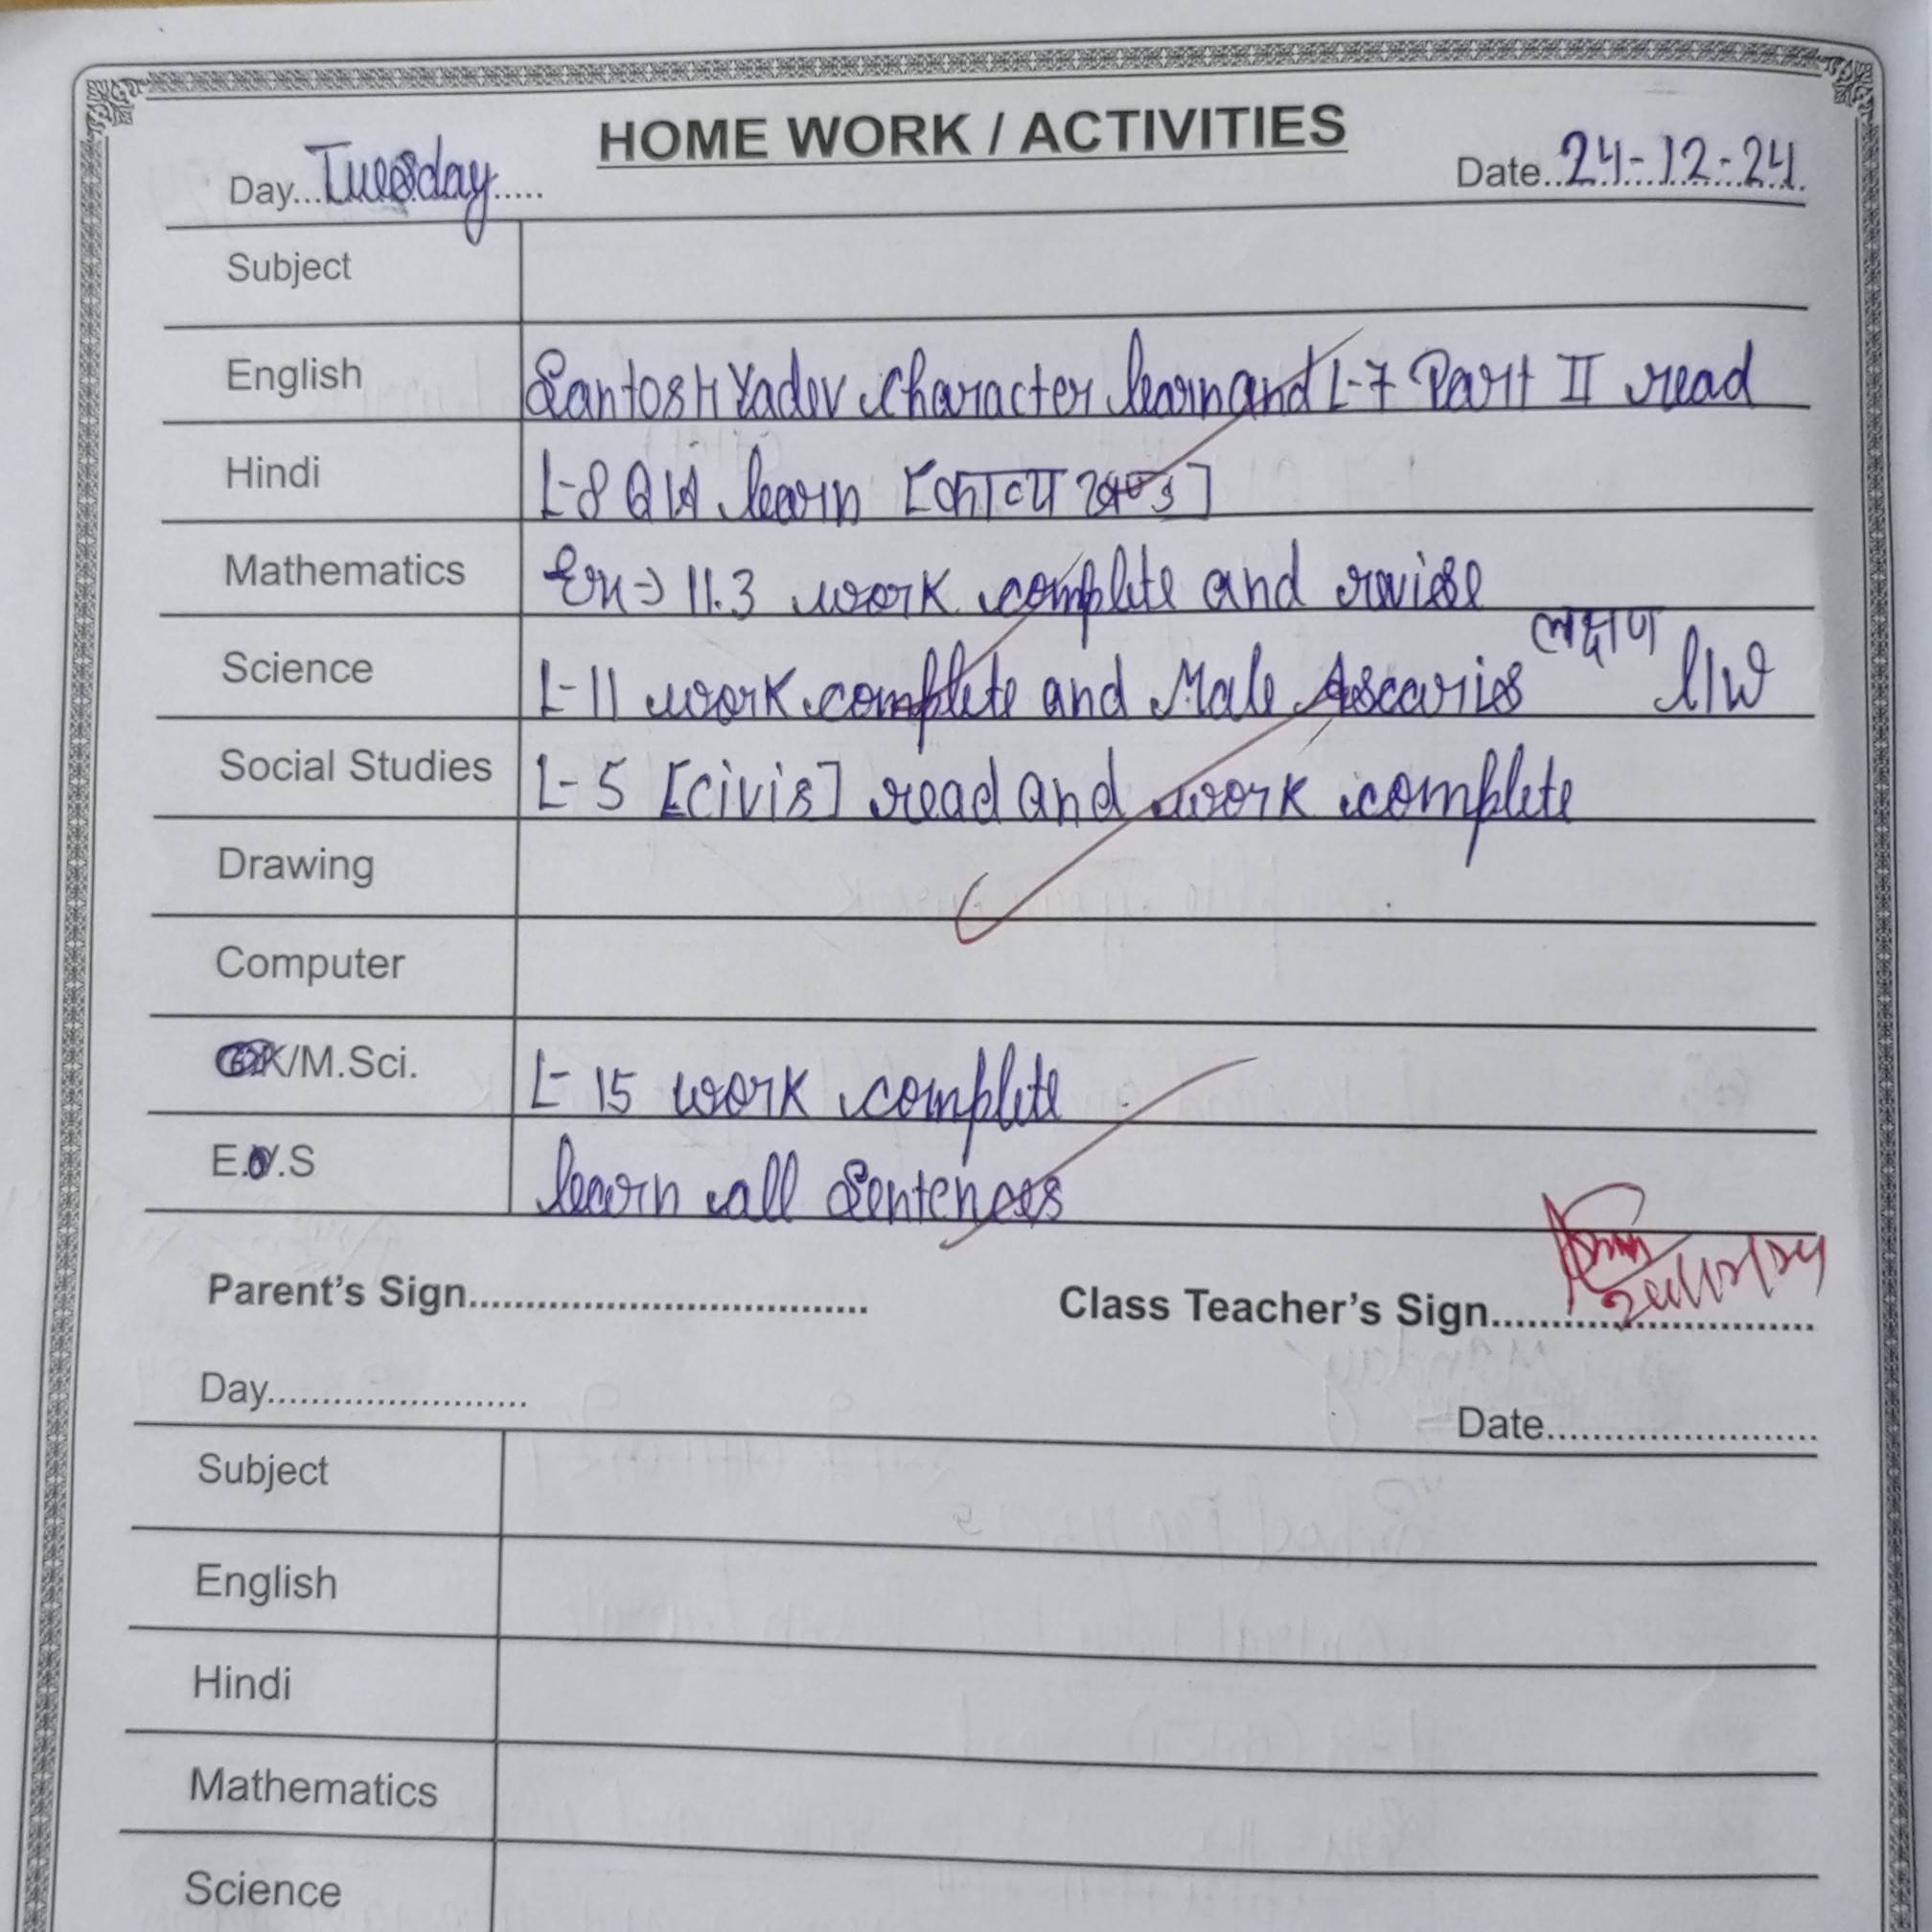 HOME WORK / ACTIVITIES
Day...Tuesday..... Date..24-12-24.
Subject
English Santosh Yadav character learn and L-7 Part II read
Hindi L-8 Q/A learn [काव्य खण्ड]
Mathematics Ex→ 11.3 work complete and revise
Science L-11 work complete and Male Ascaries लक्षण l/w
Social Studies L-5 [civis] read and work complete
Drawing
Computer
/M.Sci. L-15 work complete
E. .S learn all Sentences
Parent's Sign................................... Class Teacher's Sign............................
Day....................... Date........................
Subject
English
Hindi
Mathematics
Science